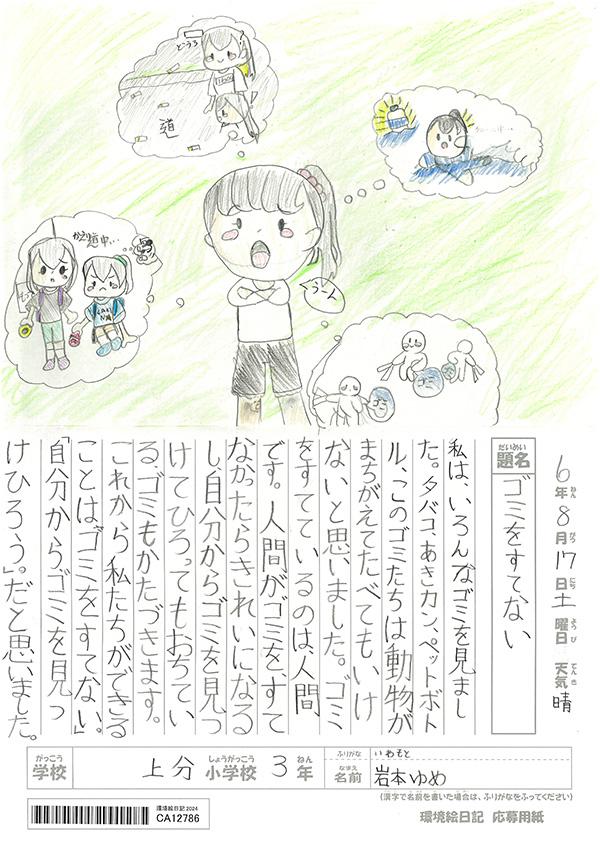 どうろ
道
かえり道中…
うーん
ゴミ
ゴミ
ゴミ
6年8月17日土曜日 天気晴
ねん がつ にち ようび てんき
だいめい
題名 ゴミをすてない
私は、いろんなゴミを見まし
た。タバコ、あきカン、ペットボト
ル、このゴミたちは動物が
まちがえてたべてもいけ
ないと思いました。ゴミ
をすてているのは、人間
です。人間がゴミを、すて
なかったらきれいになる
し、自分からゴミを見つ
けてひろってもおちてい
る、ゴミもかたづきます。
これから私たちができる
ことは、「ゴミをすてない。」
「自分から、ゴミを見つ
けひろう」。だと思いました。
がっこう しょうがっこう ねん ふりがな いわもと
学校 上分 小学校 3年 なまえ 名前 岩本ゆめ
(漢字で名前を書いた場合は、ふりがなをふってください)
環境絵日記2024
CA12786
環境絵日記 応募用紙